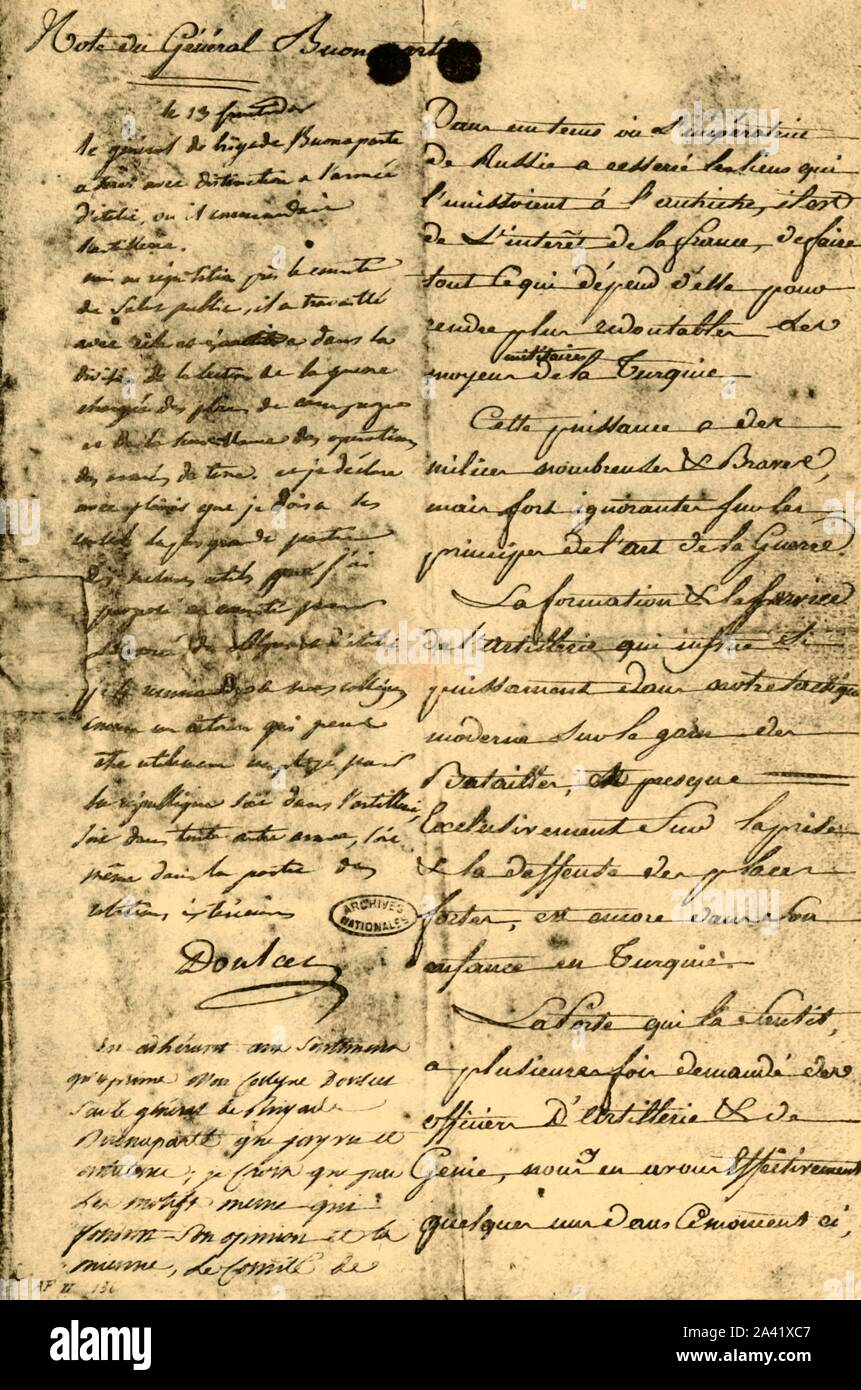 Note du Général Buonaparte
le 13 fructidor
le général de brigade Buonaparte
a servi avec distinction a l'armée
d'italie, ou il commandait
l'artillerie.
mis en réquisition près le comité
de Salut public, il a travaillé
avec zèle et dans la
division de la section de la guerre
chargée des plans de campagne
et de la surveillance des opérations
des armées de terre. et je déclare
avec plaisir que je dois a ses
conseils la plus grande partie
des mesures utiles que j'ai
proposé au comité pour
l'armée des alpes et d'italie
je le recommande a mes collègues
comme un citoien qui peut
être utilement employé pour
la république soit dans l'artillerie,
soit dans toute autre arme, soit
même dans la partie des
relations extérieures
Doulcet
en adhérant aux Sentimens
qu'exprime Mon Collegue Doulcet
Sur le général de Brigade
Buonaparte que j'ay vu et
entretenu, je Crois que par
Les motifs meme qui
fondent Son opinion et la
mienne, Le Comité de
ARCHIVES
NATIONALES
AF II 136
Dans un tems ou L'impératrice
de Russie a resserré les liens qui
l'unissoient à l'autriche, il est
de L'intérêt de la france, de faire
tout ce qui dépend d'elle pour
rendre plus redoutables les
moyens militaires de la Turquie
Cette puissance a des
milices nombreuses & Braves,
mais fort ignorantes sur les
principes de l'art de la Guerre.
La formation & le service
de l'artillerie qui influe si
puissament dans notre tactique
moderne sur le gain des
Batailles, et presque
Exclusivement sur la prise
& la deffense des places
fortes, est encore dans son
enfance en Turquie
La Porte qui l'a sentit,
a plusieurs fois demandé des
officiers D'artillerie & de
Génie, nous y en avons Effectivement
quelques uns dans Ce moment ci,
alamy
Image ID: 2A41XC7
www.alamy.com